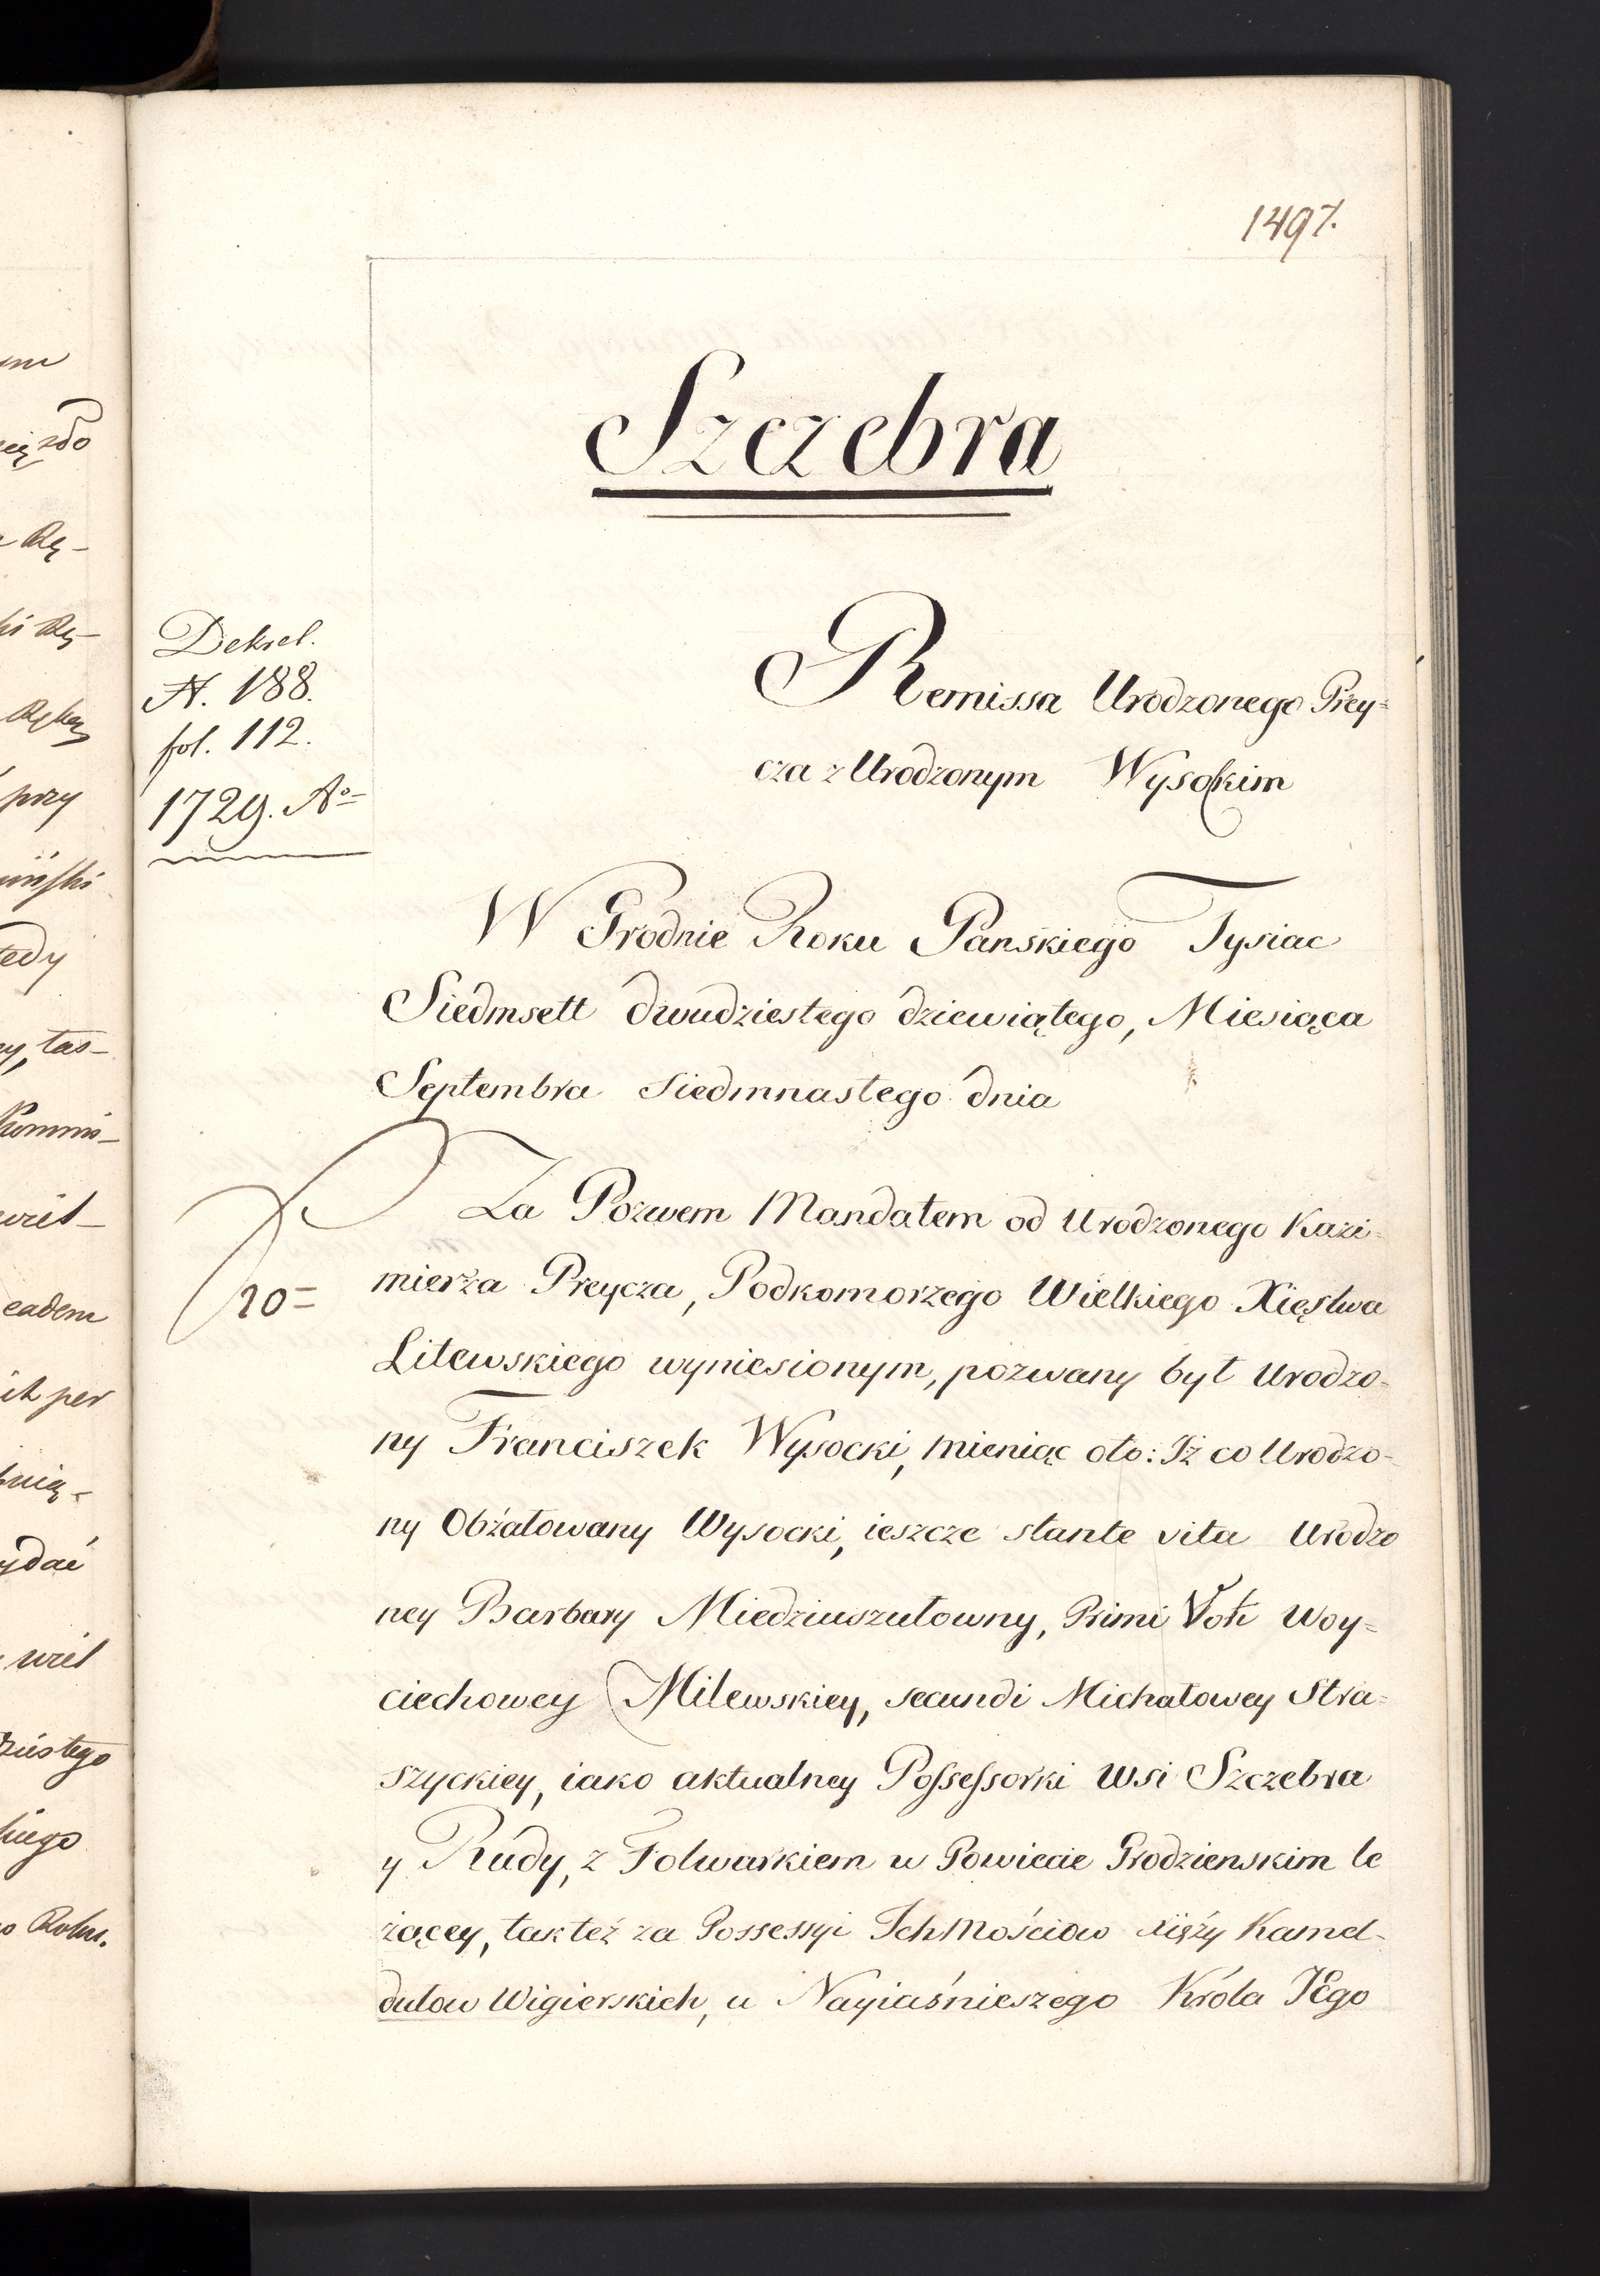 1497.
Szczebra
Deksel.
N. 188.
fol. 112.
1729. Ao
Remissa Urodzonego Prey=
cza z Urodzonym Wysockim
W Grodnie Roku Panskiego Tysiac
Siedmsett dwudziestego dziewiątego, Miesiąca
Septembra Siedmnastego dnia
Za Pozwem Mandatem od Urodzonego Kazi=
mierza Preycza, Podkomorzego Wielkiego Xięstwa
Litewskiego wyniesionym, pozwany był Urodzo=
ny Franciszek Wysocki, mieniąc oto: Iż co Urodzo-
ny Obżałowany Wysocki, ieszcze stante vita Urodzo
ney Barbary Miedziuszutowny, Primi Voti Woy=
ciechowey Milewskiey, secundi Michałowey Stra=
szyckiey, iako aktualney Possessorki Wsi Szczebra
y Rudy, z Folwarkiem w Powiecie Grodzienskim le
żącey, tak też za Possessyi Ichmościow xięży Kamel-
dulow Wigierskich, u Nayiaśnieszego Króla JEgo
20=
ym
zdo
Rę-
ki Rę-
Rękę
przy
tedy
tas-
Kommis-
wiel-
eadem
ich per
ydać
wiel
ziestego
kiego
Roku.